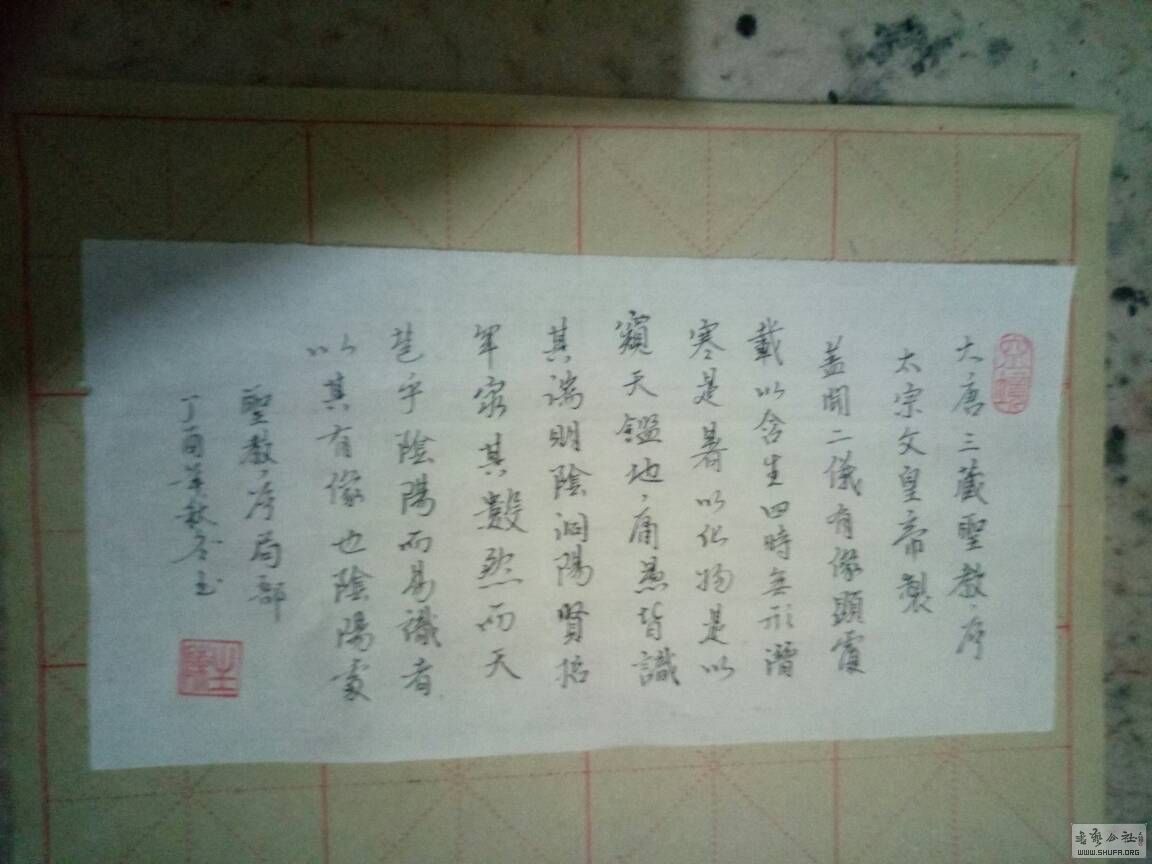 大唐三藏聖教序
太宗文皇帝製
蓋聞二儀有像顯覆
載以含生四時無形潛
寒是暑以化物是以
窺天鑑地庸愚皆識
其端明陰洞陽賢哲
罕窮其數然而天
苞乎陰陽而易識者
以其有像也陰陽處
聖教序局部
丁酉年秋冬書
WWW.SHUFA.ORG